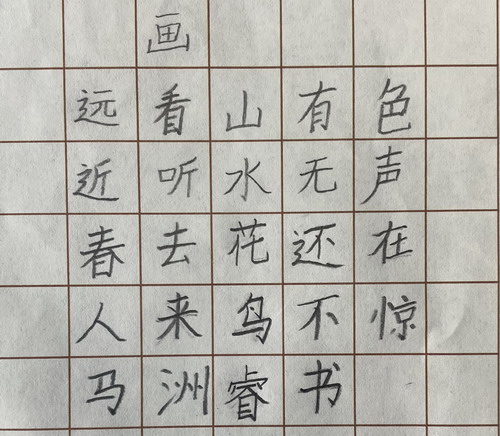 画
远看山有色
近听水无声
春去花还在
人来鸟不惊
马洲睿书